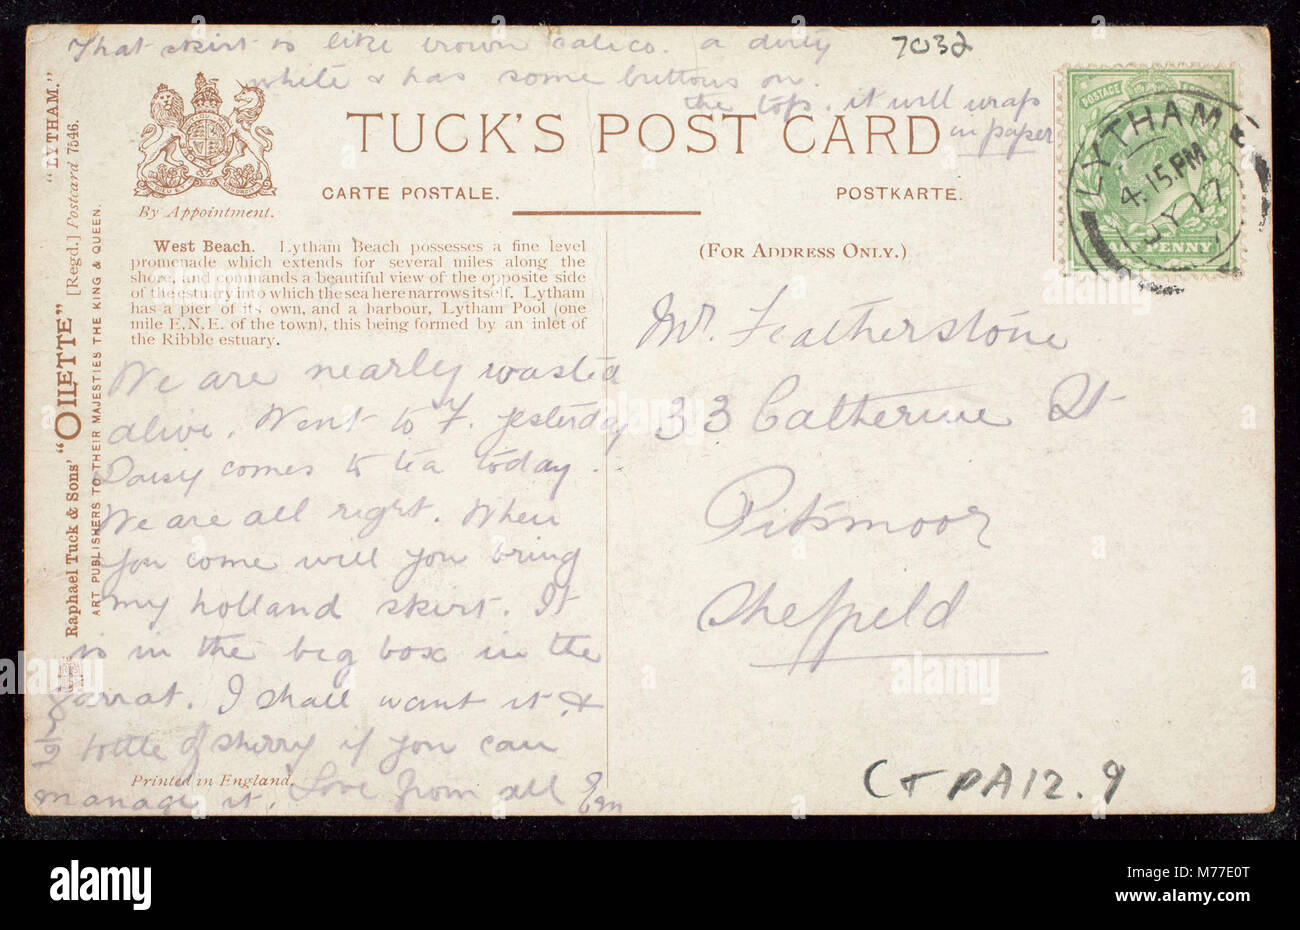 That skirt is like brown calico. a dirty
white & has some buttons on
the top. it will wrap
in paper
7032
TUCK'S POST CARD
CARTE POSTALE.
POSTKARTE.
By Appointment.
(FOR ADDRESS ONLY.)
LYTHAM
4.15 PM
JY 17
POSTAGE
HALF PENNY
West Beach. Lytham Beach possesses a fine level
promenade which extends for several miles along the
shore, and commands a beautiful view of the opposite side
of the estuary into which the sea here narrows itself. Lytham
has a pier of its own, and a harbour, Lytham Pool (one
mile E.N.E. of the town), this being formed by an inlet of
the Ribble estuary.
We are nearly wasted
alive. Went to F. yesterday
Daisy comes to tea today.
We are all right. When
you come will you bring
my holland skirt. It
is in the big box in the
garrat. I shall want it &
bottle of sherry if you can
manage it. Love from all Em
Printed in England.
Mr. Featherstone
33 Catherine St
Pitsmoor
Sheffield
CTPA12.9
Raphael Tuck & Sons' "OILETTE" [Regd.] Postcard 7546. "LYTHAM."
ART PUBLISHERS TO THEIR MAJESTIES THE KING & QUEEN.
alamy
Image ID: M77E0T
www.alamy.com